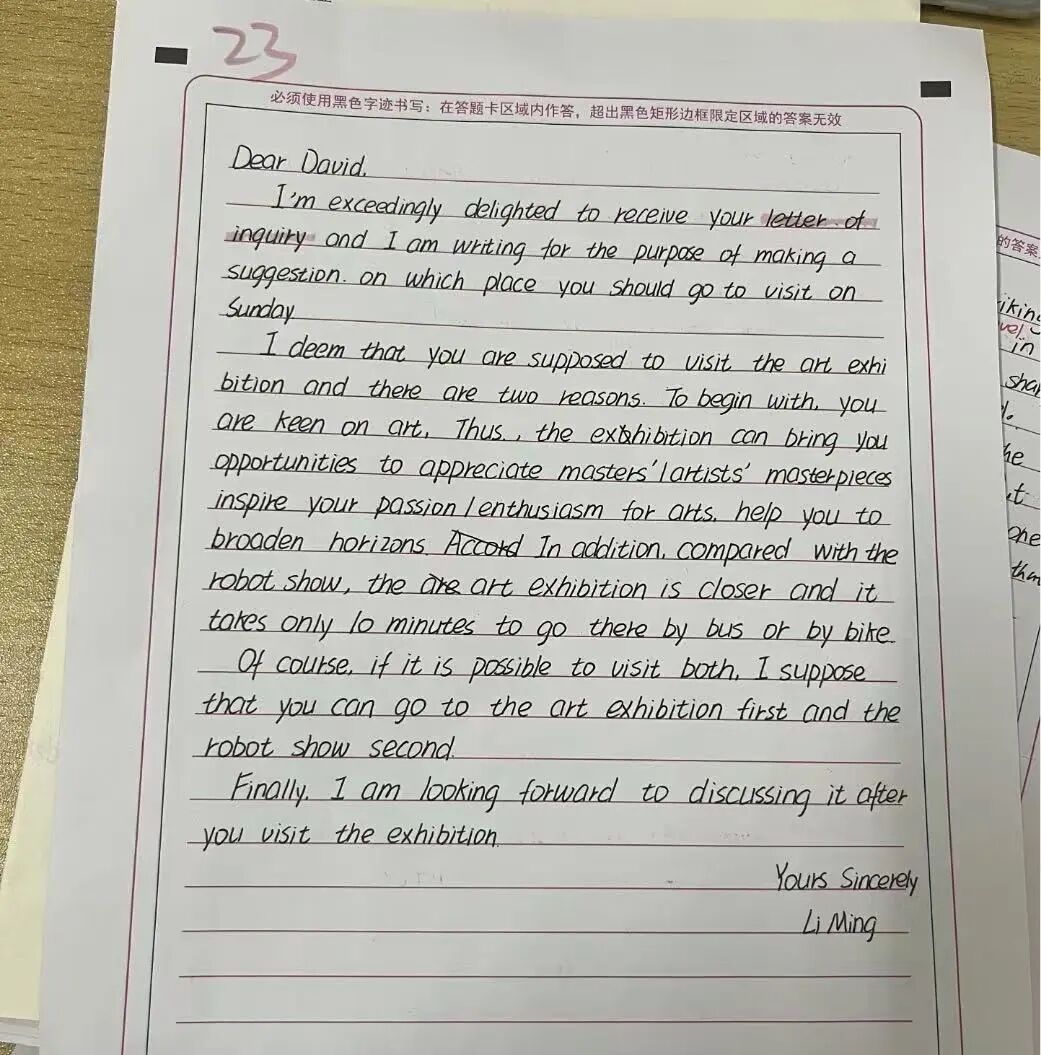 23
必须使用黑色字迹书写：在答题卡区域内作答，超出黑色矩形边框限定区域的答案无效
Dear David,
I'm exceedingly delighted to receive your letter of
inquiry and I am writing for the purpose of making a
suggestion. on which place you should go to visit on
Sunday
I deem that you are supposed to visit the art exhi
bition and there are two reasons. To begin with, you
are keen on art, Thus., the exbhibition can bring you
opportunities to appreciate masters'/artists' masterpieces
inspire your passion/enthusiasm for arts, help you to
broaden horizons. Accord In addition, compared with the
robot show, the are art exhibition is closer and it
takes only 10 minutes to go there by bus or by bike.
Of course, if it is possible to visit both, I suppose
that you can go to the art exhibition first and the
robot show second.
Finally, I am looking forward to discussing it after
you visit the exhibition.
Yours Sincerely
Li Ming
的答案
in